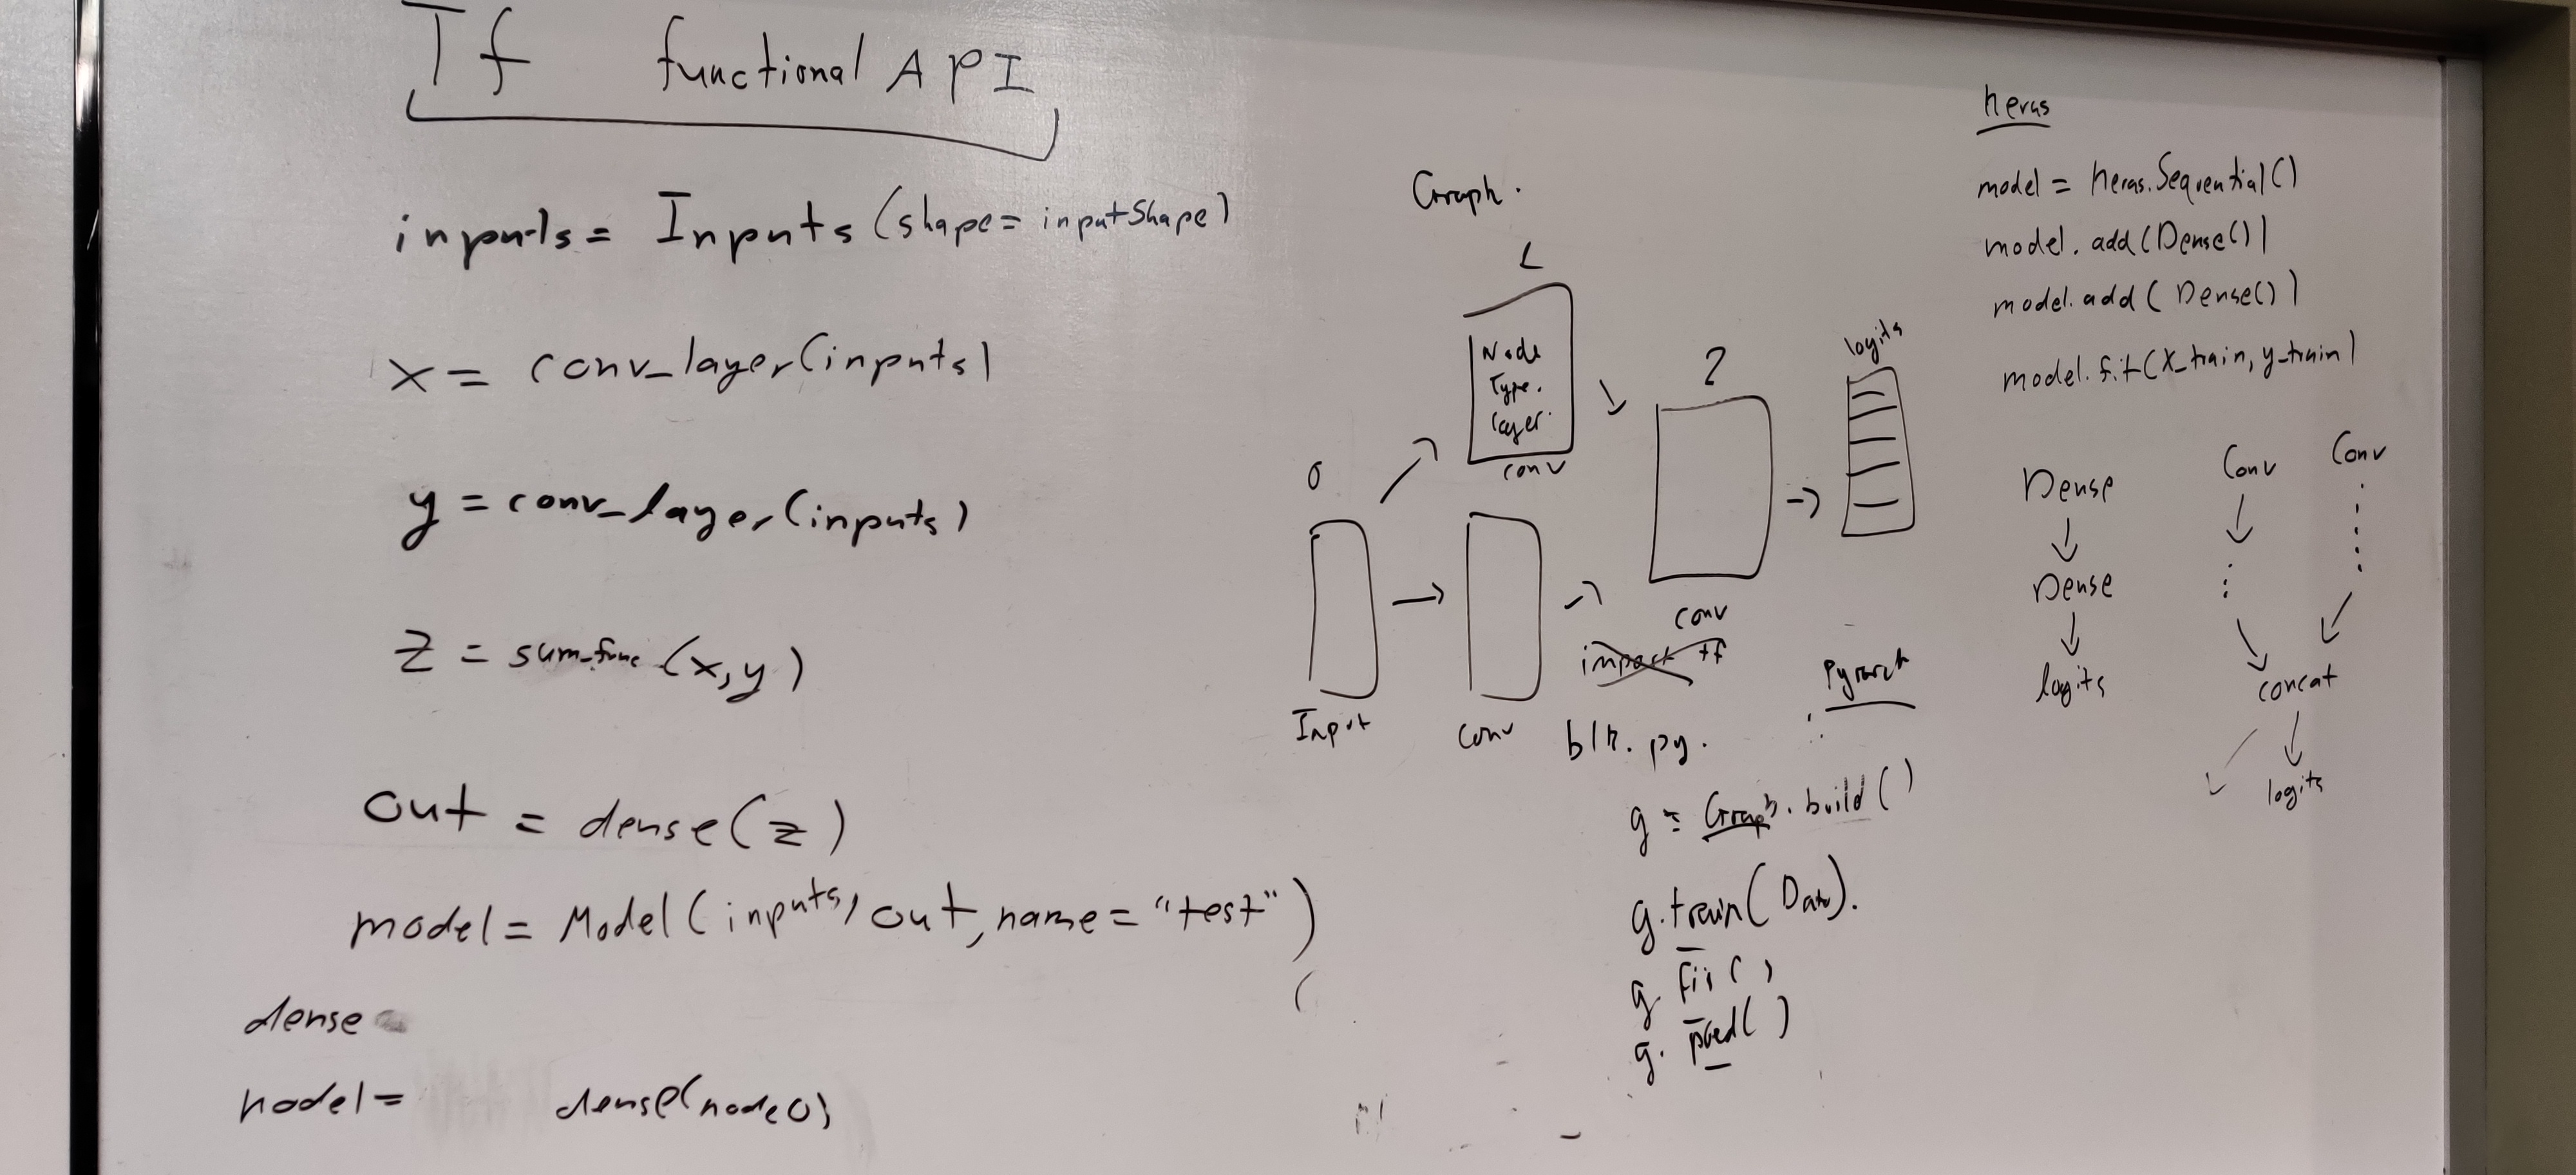 Tf functional API
inputs = Inputs (shape= inputShape)
x = conv_layer(inputs)
y = conv_layer(inputs)
z = sum_func (x,y)
out = dense(z)
model = Model (inputs, out, name = "test")
(
dense
node1 = dense(node0)
Graph.
Node
Type.
layer.
conv
0
Input
conv
2
conv
logits
import tf
blk. py.
g = Graph. build ()
g. train(Data).
g. fit ( )
g. pred( )
keras
model = keras.Sequential()
model. add(Dense())
model. add( Dense())
model. fit(X_train, y_train)
Dense
Dense
logits
Conv
Conv
concat
logits